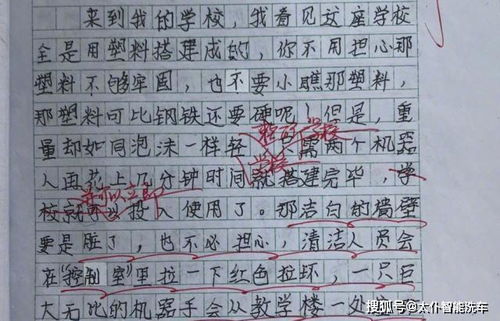 来到我的学校，我看见这座学校
全是用塑料搭建成的，你不用担心那
塑料不够牢固，也不要小瞧那塑料，
那塑料可比钢铁还要硬呢！但是，重
量却如同泡沫一样轻，只需两个机器
学校
人再花上几分钟时间就搭建完毕，学
可以立即
校就可以投入使用了。那洁白的墙壁
要是脏了，也不必担心，清洁人员会
在“控制室”里拉一下红色拉环，一只巨
大无比的机器手会从教学楼一处
搜狐号@太仆智能洗车